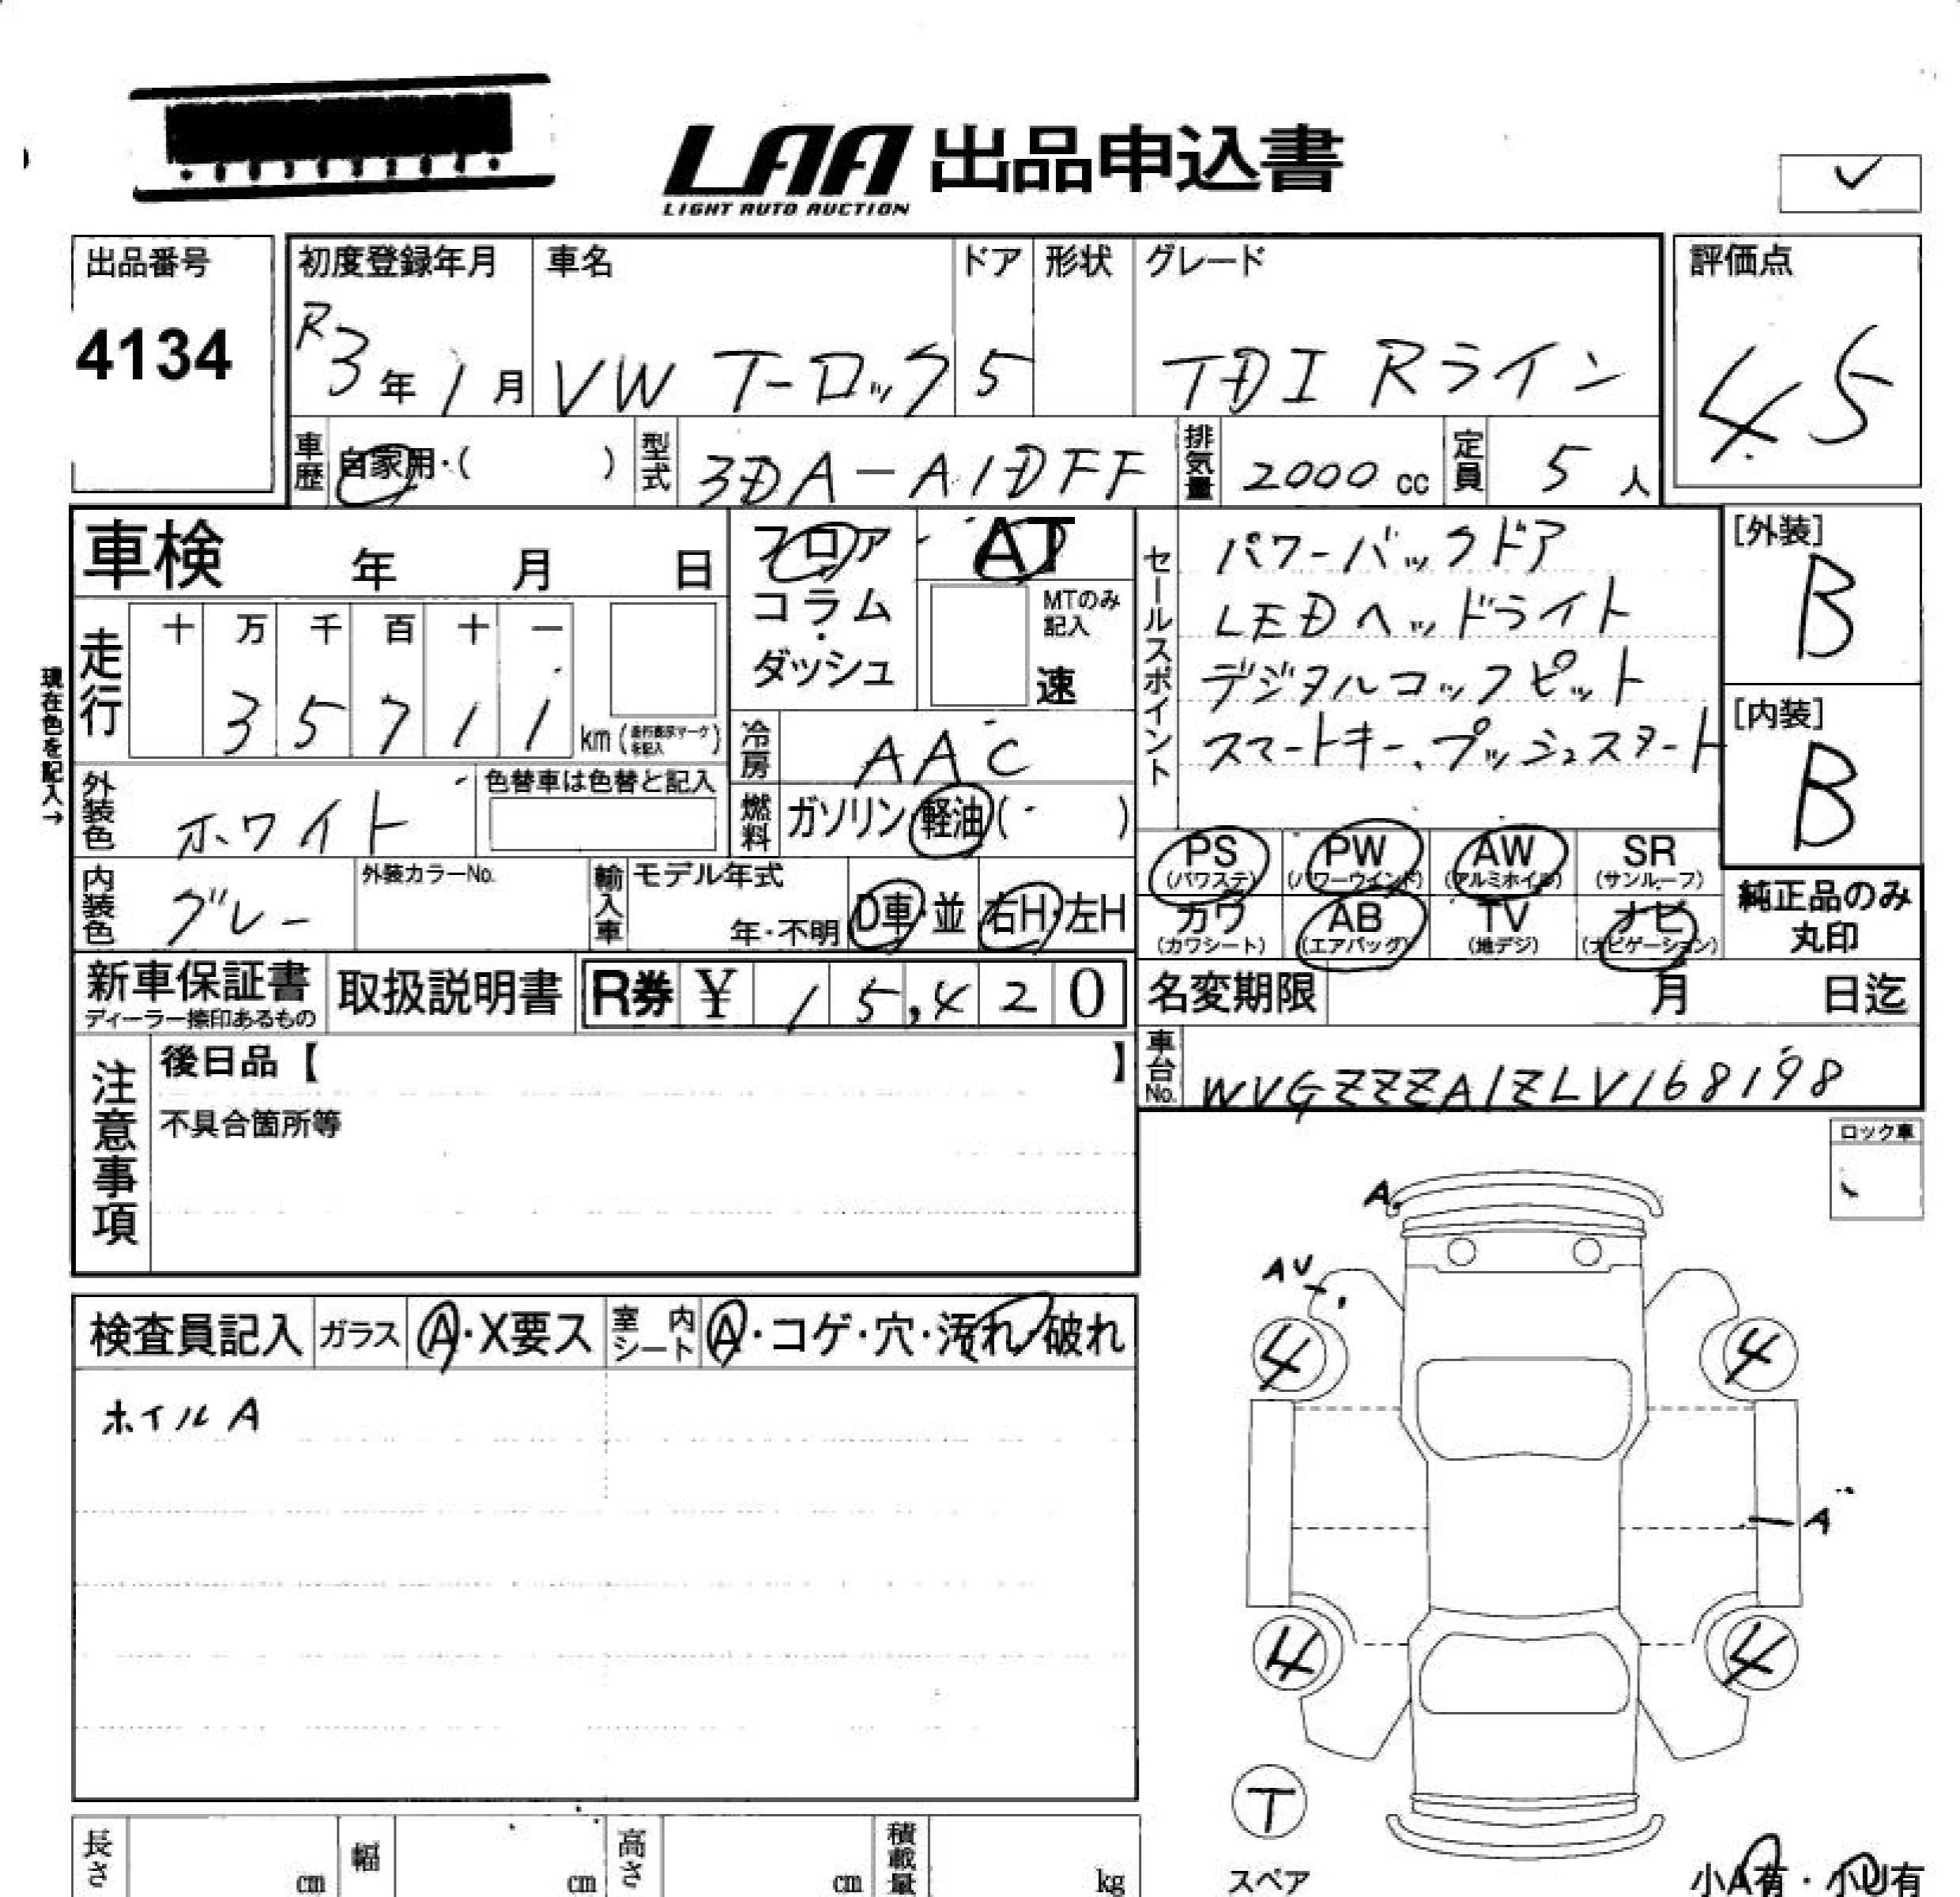 LAA 出品申込書
LIGHT AUTO AUCTION
出品番号
4134
初度登録年月
R3年1月
車名
VW T-ロック
ドア
5
形状
グレード
TDI Rライン
評価点
4.5
車歴 自家用・( )
型式 3DA-A1DFF
排気量 2000 cc
定員 5 人
車検 年 月 日
フロア AT
コラム・
ダッシュ
MTのみ記入
速
セールスポイント
パワーバックドア
LEDヘッドライト
デジタルコックピット
スマートキー、プッシュスタート
[外装]
B
[内装]
B
現在色を記入→
走行
十 万 千 百 十 一
3 5 7 1 1 km (走行表示マークを記入)
冷房 AAC
外装色 ホワイト
色替車は色替と記入
燃料 ガソリン・軽油( )
内装色 グレー
外装カラーNo.
輸入車 モデル年式
年・不明 D車・並 右H・左H
PS (パワステ)
PW (パワーウインド)
AW (アルミホイル)
SR (サンルーフ)
カワ (カワシート)
AB (エアバッグ)
TV (地デジ)
ナビ (ナビゲーション)
純正品のみ
丸印
新車保証書
ディーラー捺印あるもの
取扱説明書
R券 ¥ 15,420
名変期限 月 日迄
車台No. WVGZZZA1ZLV168198
注意事項
後日品【 】
不具合箇所等
ロック車
A
AU
検査員記入 ガラス A・X要ス 室内シート A・コゲ・穴・汚れ・破れ
ホイルA
4
4
A
4
4
T
スペア
長さ cm 幅 cm 高さ cm 積載量 kg
小A有・小U有